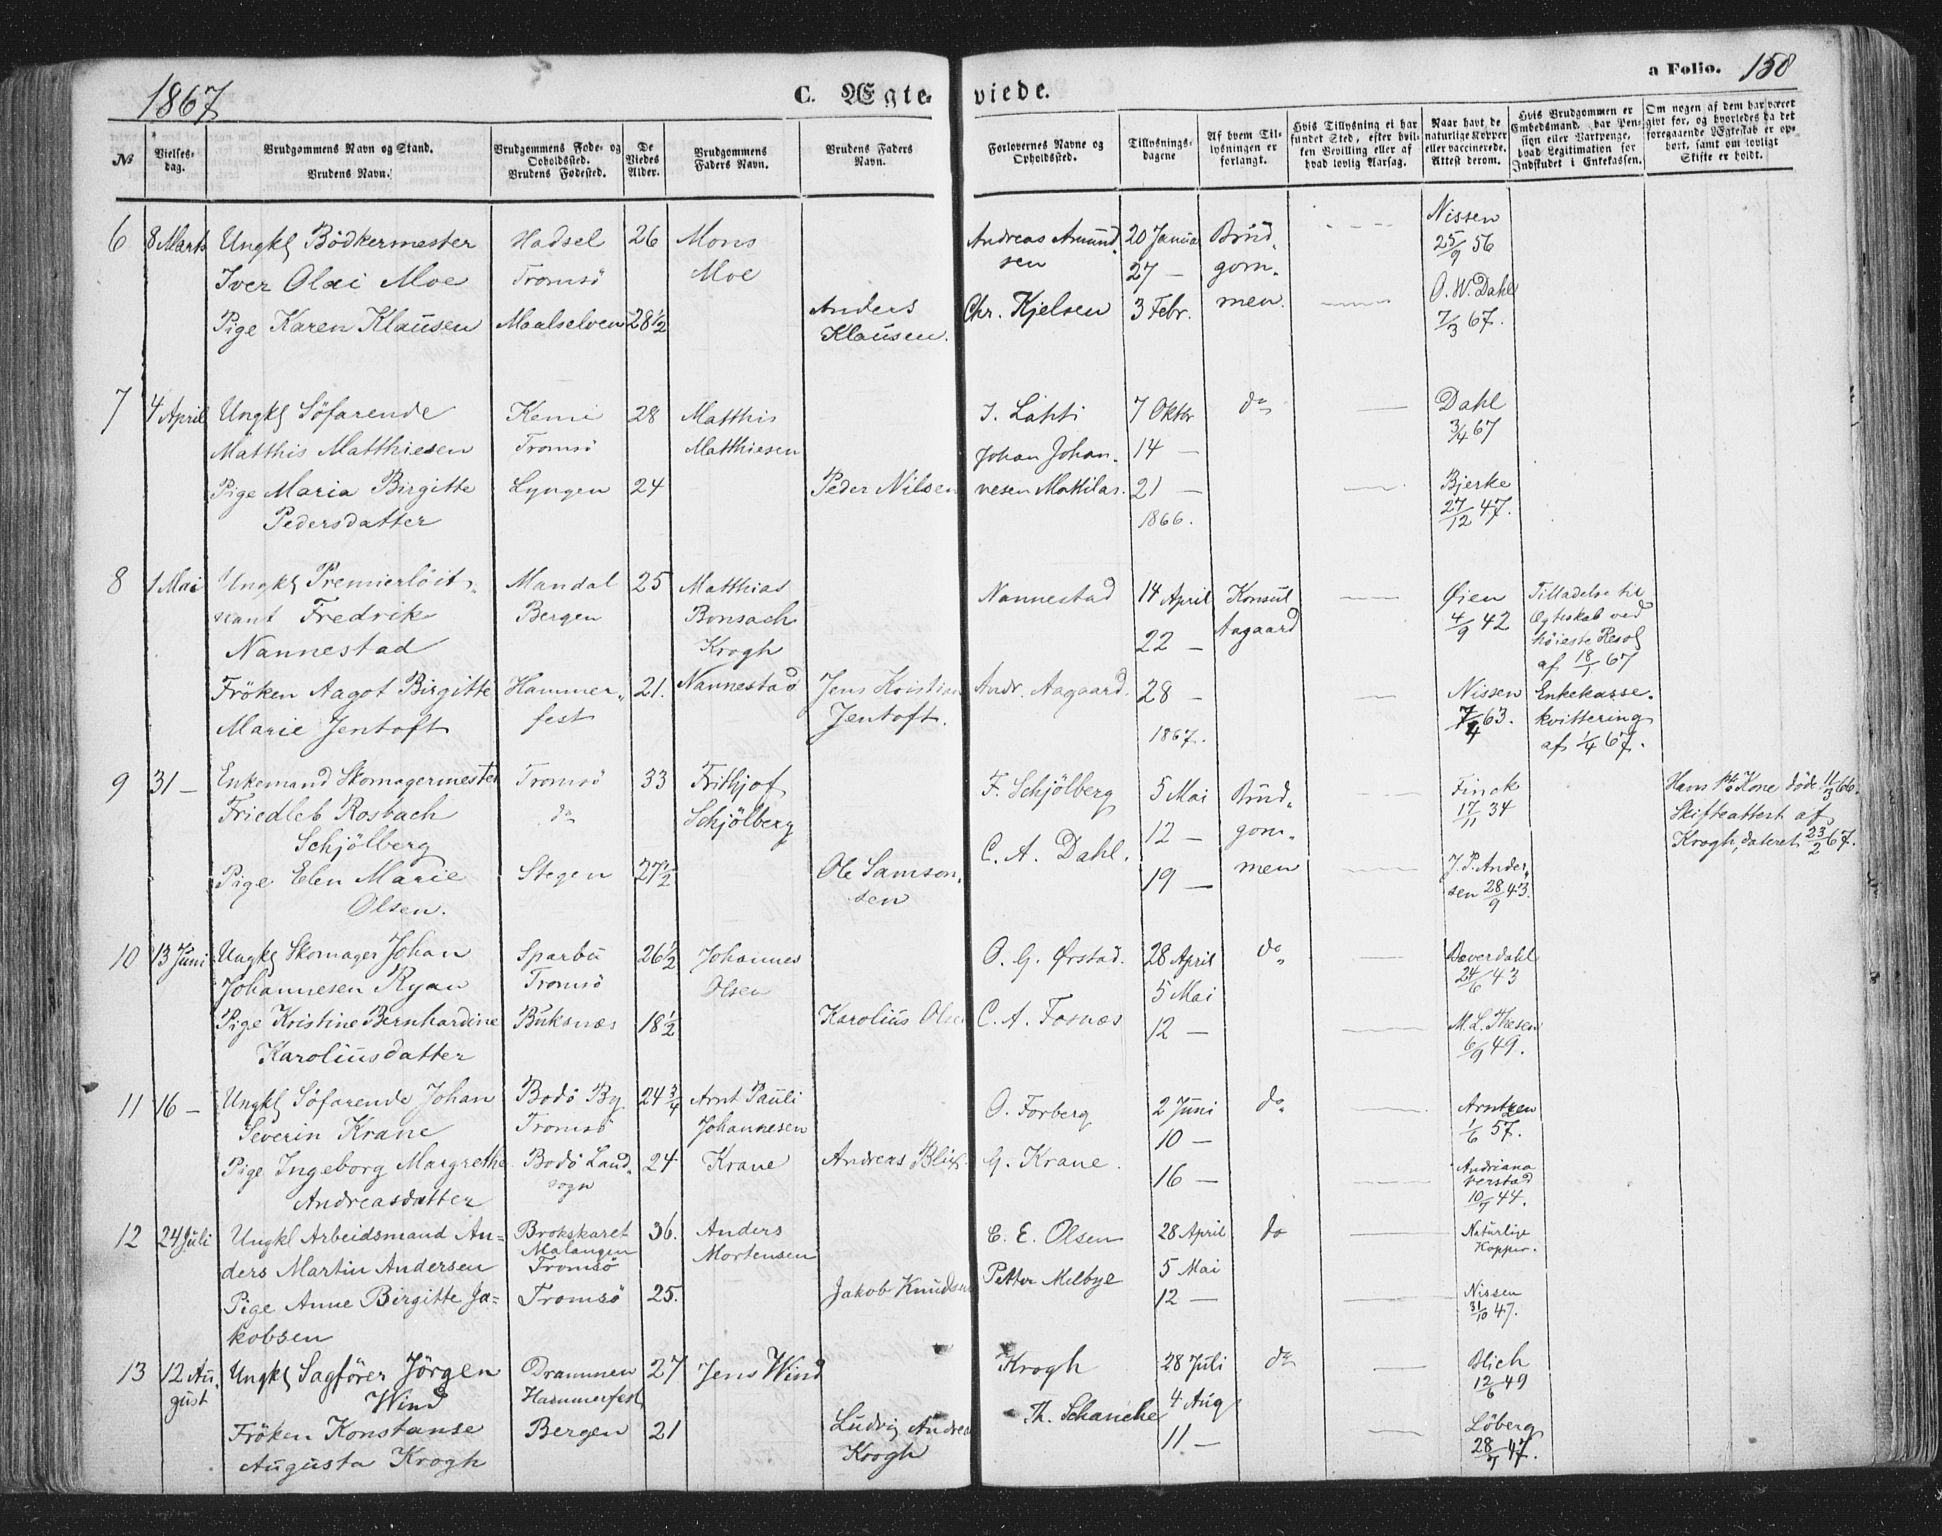 1867
C. Ægte- viede.
a Folio. 158
No
Vielses-
dag.
Brudgommens Navn og Stand.
Brudens Navn.
Brudgommens Føde- og
Opholdssted.
Brudens Fødested.
De
Viedes
Alder.
Brudgommens
Faders Navn.
Brudens Faders
Navn.
Forlovernes Navne og
Opholdssted.
Tillysnings-
dagene
Af hvem Til-
lysningen er
forlangt.
Hvis Tillysning ei har
fundet Sted, efter hvil-
ken Bevilling eller af
hvad lovlig Aarsag.
Naar havt de
naturlige Kopper
eller vaccinerede.
Attest derom.
Hvis Brudgommen er
Embedsmand, har Pen-
sion eller Vartpenge,
hvad Legitimation for
Indskudet i Enkekassen.
Om nogen af dem har været
givt før, og hvorledes da det
foregaaende Ægteskab er op-
hørt, samt om lovligt
Skifte er holdt.
6 8 Marts Ungkl Bödkermester Hadsel 26 Mons Andreas Amund- 20 Janua Brüd- Nissen 25/9 56
Iver Olai Moe Tromsö Moe sen 27 — gom-
Pige Karen Klaüsen Maalselven 28 1/2 Anders Chr. Kjelsen 3 Febr. men. O. W. Dahl
Klaüsen. 7/3 67.
7 4 April Ungkl Söfarende Kemi 28 Matthis I. Lahti 7 Oktbr do Dahl
Matthis Matthiesen Tromsö Matthiesen Johan Johan- 14 — 3/4 67
Pige Maria Birgitte Lyngen 24 Peder Nilsen nesen Mattilas. 21 — Bjerke
Pedersdatter 1866. 27/12 47.
8 1 Mai Ungkl Premierlöit- Mandal 25 Matthias Nannestad 14 April Konsül Øien Tilladelse til
nant Fredrik Bergen Bonsach 22 — Aagaard 4/9 42 Ægteskab ved
Nannestad Krogh höieste Resol
af 18/1 67
Fröken Aagot Birgitte Hammer- 21. Nannestad Jens Kristian Andr. Aagaard. 28 — Nissen Enkekasse-
Marie Jentoft fest Jentoft. 1867. 63. kvittering
af 1/4 67.
9 31 — Enkemand Skomagermester Tromsö 33 Frithjof F. Schjölberg 5 Mai Brüd- Finck Hans Kone döde 11/3 66.
Friedleb Rosbach do Schjölberg 12 — gom- 17/11 34 Skifteattest af
Schjölberg C. A. Dahl. Krogh, dateret 23/2 67.
Pige Elen Marie Stegen 27 1/2 Ole Samson- 19 — men J. P. Ander-
Olsen. sen sen 28/9 43.
10 13 Juni Ungkl Skomager Johan Sparbü 26 1/2 Johannes O. G. Ørstad. 28 April do Deverdahl
Johannesen Ryan Tromsö Olsen 5 Mai 24/6 43
Pige Kristine Bernhardine Büksnæs 18 1/2 Karoliüs Olsen C. A. Fosnæs 12 — M. L. Thesen
Karoliüsdatter 6/9 49.
11 16 — Ungkl Söfarende Johan Bodö By 24 3/4 Arnt Paüli O. Forberg 2 Jüni do Arntzen
Severin Krane Tromsö Johannesen 10 — 1/6 57.
Pige Ingeborg Margrethe Bodö Land- 24 Krane Andreas Blix G. Krane. 16 — Andriana
Andreasdatter sogn verstad
44.
12 24 Jüli Ungkl Arbeidsmand An- Brokskaret 36. Anders C. E. Olsen 28 April do Natürlige
ders Martin Andersen Malangen Mortensen 5 Mai Kopper.
Tromsö Petter Melbye
Pige Anne Birgitte Ja- Tromsö 25. Jakob Knüdsen 12 — Nissen
kobsen 31/10 47.
13 12 Au- Ungkl Sagförer Jörgen Drammen 27 Jens Wind Krogh 28 Juli do Blich
gust Wind Hammerfest Th. Schanche 4 Aug 12/6 49
Fröken Konstanse Bergen 21 Lüdvig Andreas 11 — Löberg
Aügusta Krogh Krogh 47.